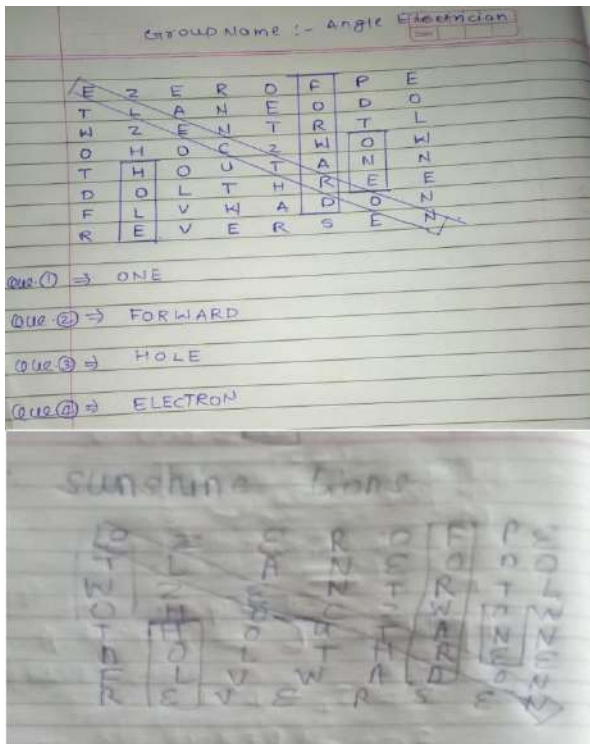 Group Name :- Angle Electrician
E Z E R O F P E
T L A N E O D O
W Z E N T R T L
O H O C Z W O W
T H O U T A N N
D O L T H R E E
F L V W A D O N
R E V E R S E N
Que.① ⇒ ONE
Que.② ⇒ FORWARD
Que.③ ⇒ HOLE
Que.④ ⇒ ELECTRON
Sunshine Lions
Z E R O F P E
T L A N E O D O
W Z E N T R T L
O H C W O W
T H O U T A N N
D O L T H R E E
F L V W A D O N
R E V E R S E N